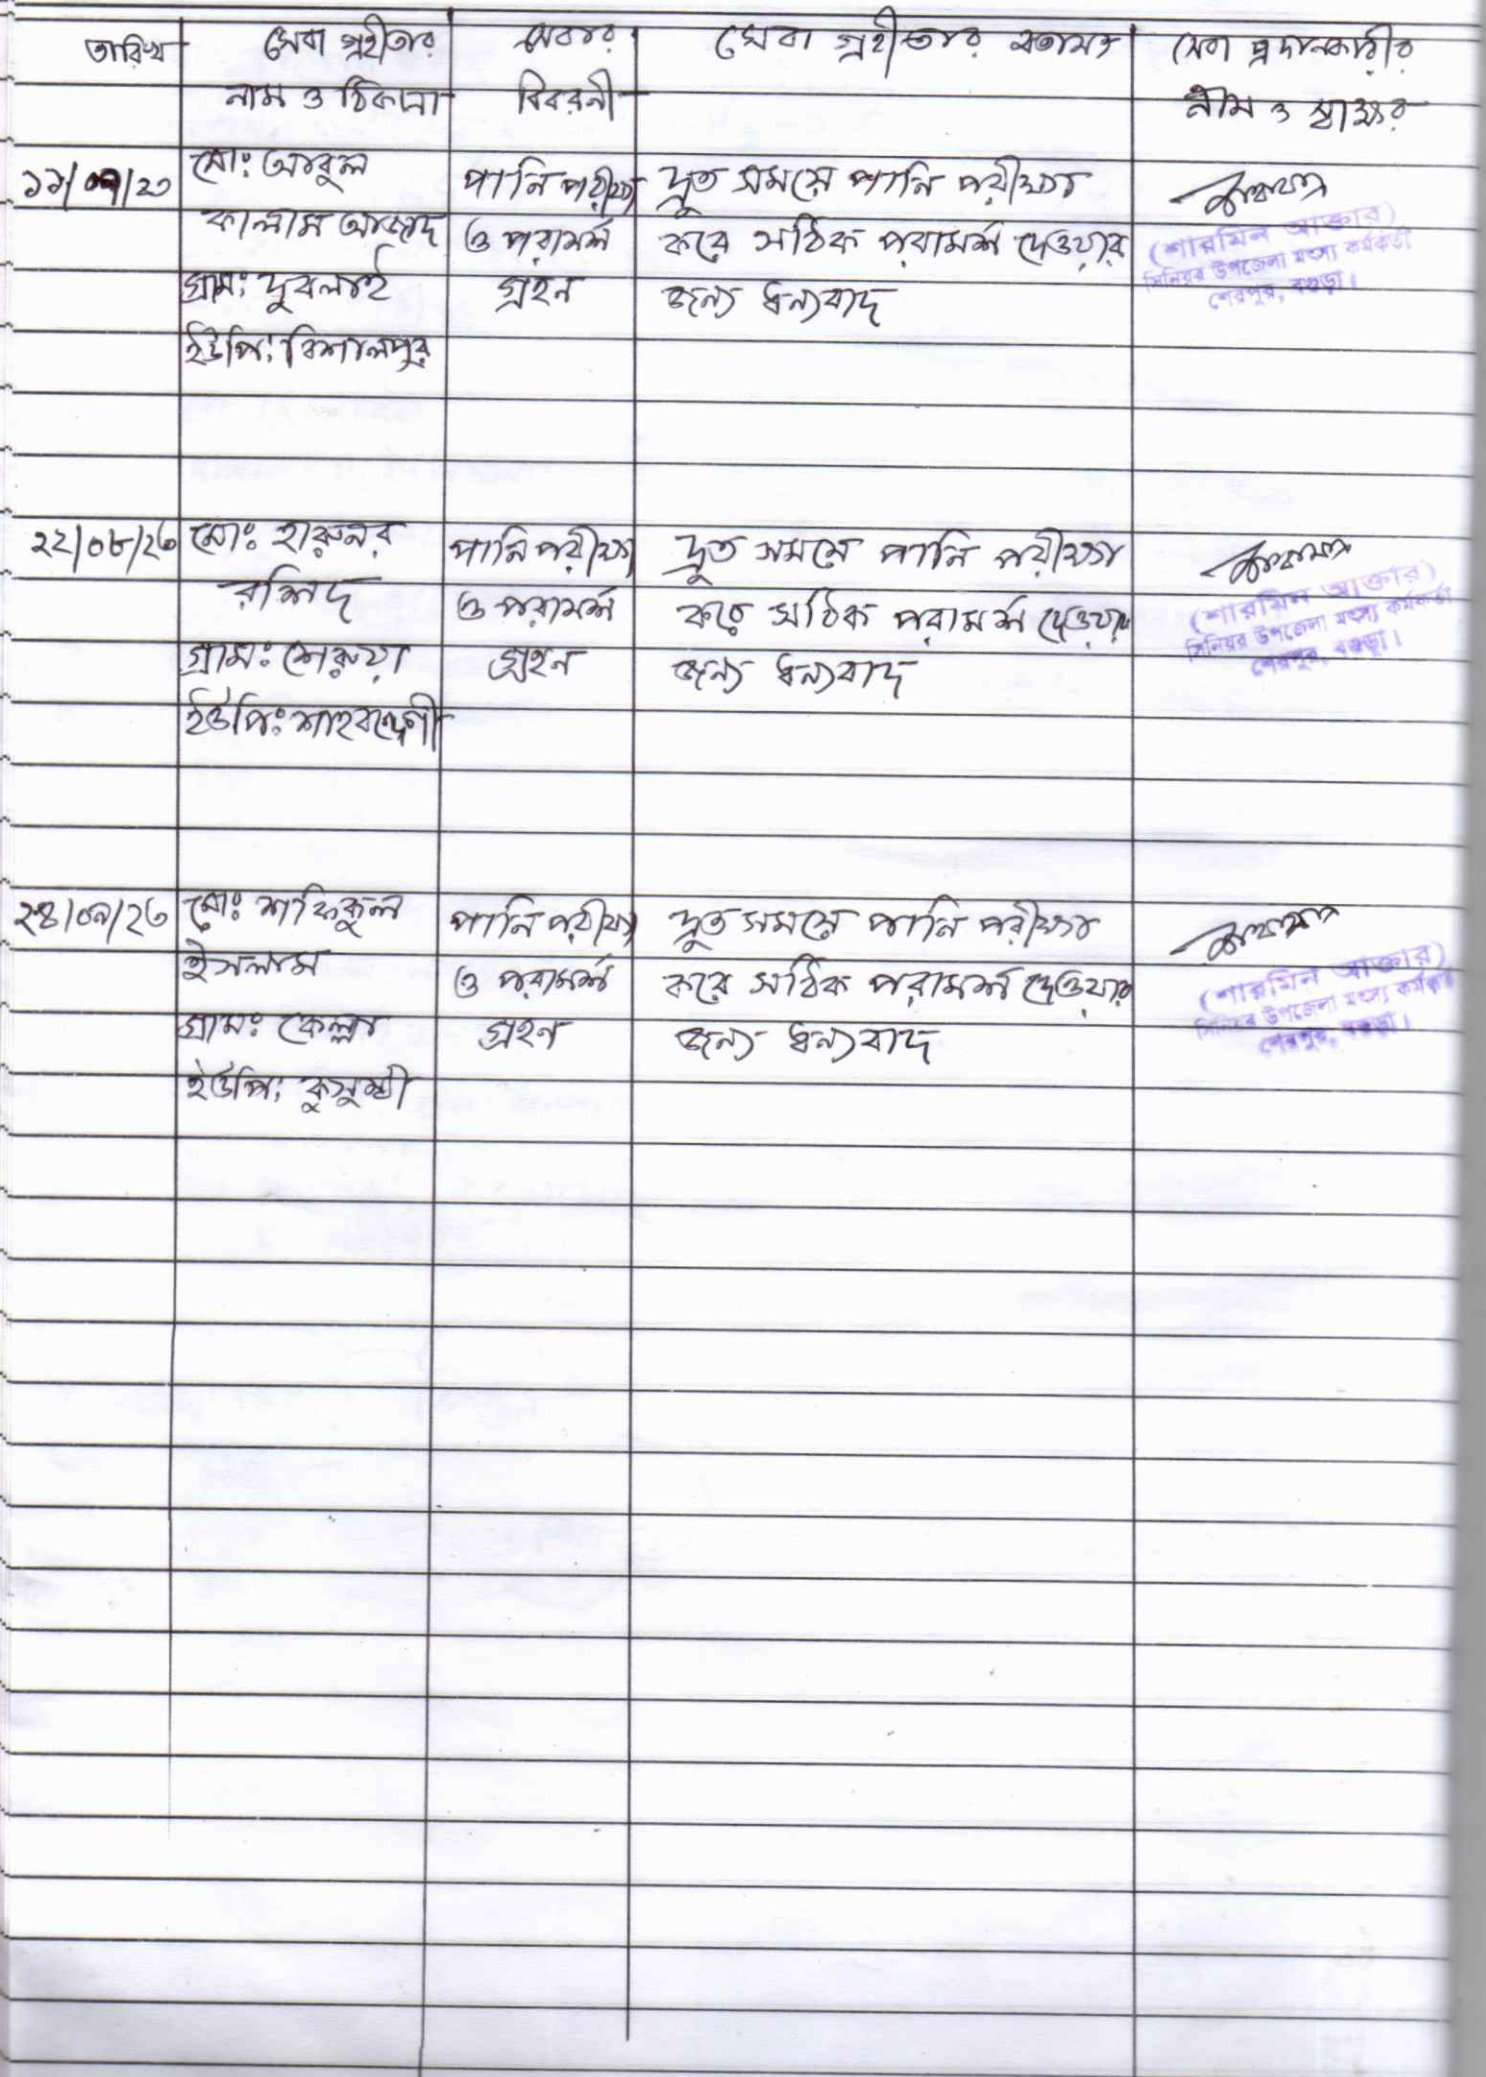 তারিখ
সেবা গ্রহীতার
নাম ও ঠিকানা
সেবার
বিবরনী
সেবা গ্রহীতার মতামত
সেবা প্রদানকারীর
নাম ও স্বাক্ষর
১১/০৭/২৩
মোঃ আবুল
কালাম আজাদ
গ্রামঃ দুবলাই
ইউপিঃ বিশালপুর
পানি পরীক্ষা
ও পরামর্শ
গ্রহন
দ্রুত সময়ে পানি পরীক্ষা
করে সঠিক পরামর্শ দেওয়ার
জন্য ধন্যবাদ
(শারমিন আক্তার)
সিনিয়র উপজেলা মৎস্য কর্মকর্তা
শেরপুর, বগুড়া।
২২/০৮/২৩
মোঃ হারুনর
রশিদ
গ্রামঃ শেরুয়া
ইউপিঃ শাহবন্দেগী
পানি পরীক্ষা
ও পরামর্শ
গ্রহন
দ্রুত সময়ে পানি পরীক্ষা
করে সঠিক পরামর্শ দেওয়ার
জন্য ধন্যবাদ
(শারমিন আক্তার)
সিনিয়র উপজেলা মৎস্য কর্মকর্তা
শেরপুর, বগুড়া।
২৪/০৯/২৩
মোঃ শফিকুল
ইসলাম
গ্রামঃ কেল্লা
ইউপিঃ কুসুম্বী
পানি পরীক্ষা
ও পরামর্শ
গ্রহন
দ্রুত সময়ে পানি পরীক্ষা
করে সঠিক পরামর্শ দেওয়ার
জন্য ধন্যবাদ
(শারমিন আক্তার)
সিনিয়র উপজেলা মৎস্য কর্মকর্তা
শেরপুর, বগুড়া।